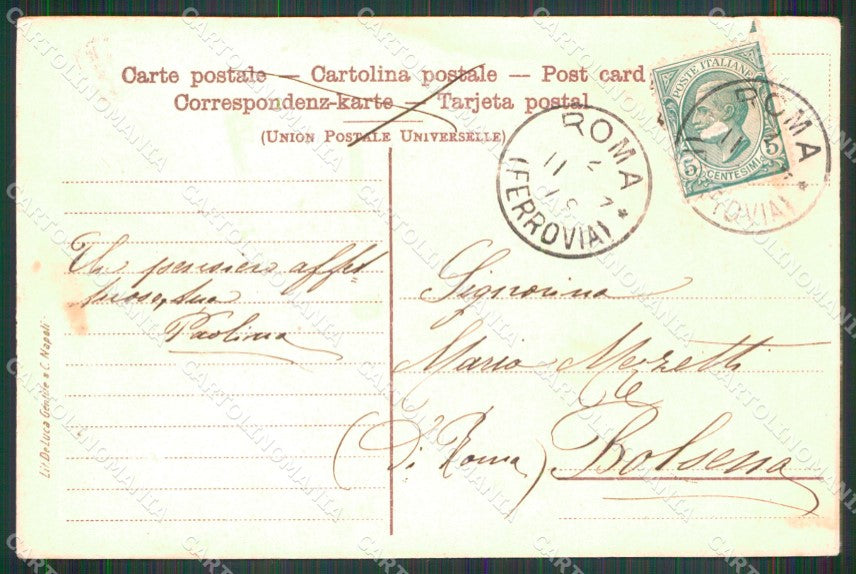 Carte postale — Cartolina postale — Post card
Correspondenz-karte — Tarjeta postal
(Union Postale Universelle)
POSTE ITALIANE
5 5
CENTESIMI
ROMA
(FERROVIA)
ROMA
Un pensiero affet
tuoso, tua
Paolina
Signorina
Maria Mozzetti
(di Roma) Bolsena
Lit. De Luca Gentile & C. Napoli
CARTOLINOMANIA